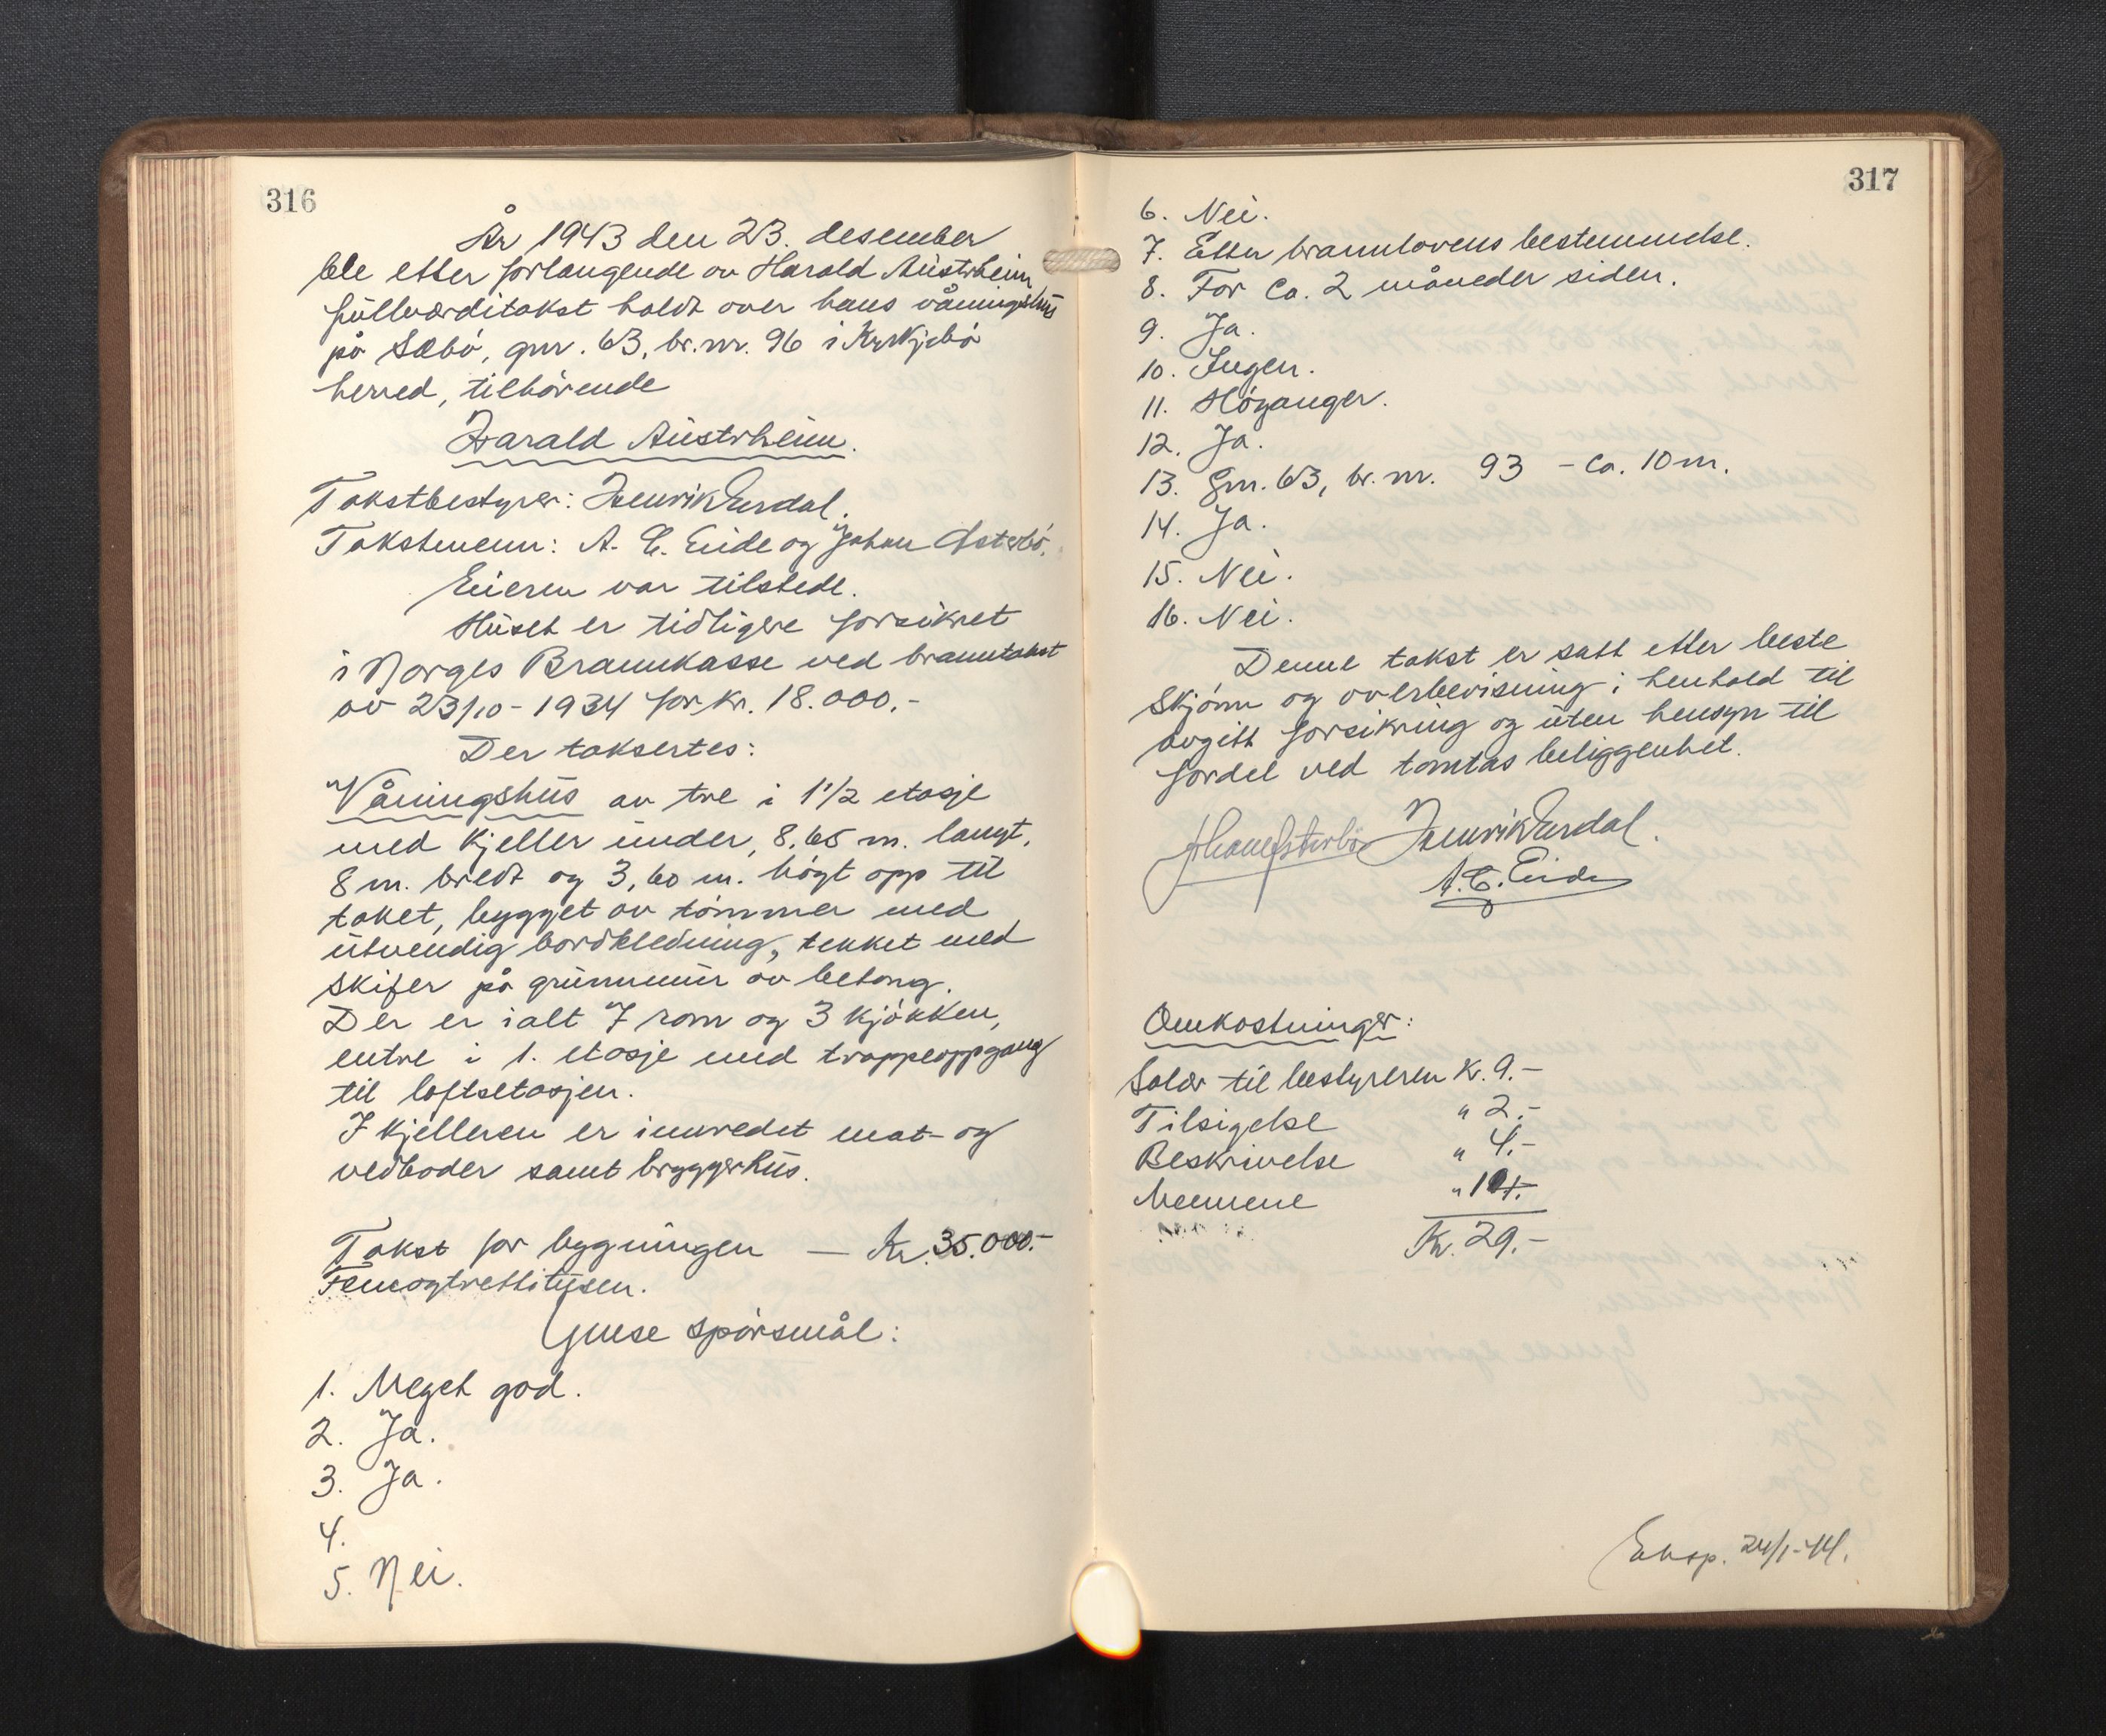 316
År 1943 den 23. desember
ble etter forlangende av Harald Austrheim
fullverditakst holdt over hans våningshus
på Sæbö, gnr. 63, br. nr. 96 i Kyrkjebö
herred, tilhörende
Harald Austrheim.
Takstbestyrer: Henrik Erdal.
Takstmenn: A. C. Eide og Johan Österbö.
Eieren var tilstede.
Huset er tidligere forsikret
i Norges Brannkasse ved branntakst
av 23/10 - 1934 for kr. 18.000.-
Der taksertes:
Våningshus av tre i 1 1/2 etasje
med kjeller under, 8,65 m. langt,
8 m. bredt og 3,60 m. högt opp til
taket, bygget av tömmer med
utvendig bordkledning, tekket med
skifer på grunnmur av betong.
Der er ialt 7 rom og 3 kjökken,
entre i 1. etasje med trappeoppgang
til loftsetasjen.
I kjelleren er innredet mat- og
vedboder samt bryggerhus.
Takst for bygningen — Kr. 35.000.-
Femogtrettitusen.
Gmse spörsmål:
1. Meget god.
2. Ja.
3. Ja.
4.
5. Nei.
317
6. Nei.
7. Etter brannlovens bestemmelse.
8. For ca. 2 måneder siden.
9. Ja.
10. Ingen.
11. Höyanger.
12. Ja.
13. Gnr. 63, br. nr. 93 - ca. 10 m.
14. Ja.
15. Nei.
16. Nei.
Denne takst er satt etter beste
skjönn og overbevisning i henhold til
avgitt forsikring og uten hensyn til
fordel ved tomtas beliggenhet.
Johan Österbö Henrik Erdal.
A. C. Eide
Omkostninger:
Salær til bestyreren Kr. 9.-
Tilsigelse " 2.-
Beskrivelse " 4.-
Mennene " 14.-
Kr. 29.-
Eksp. 24/1-44.